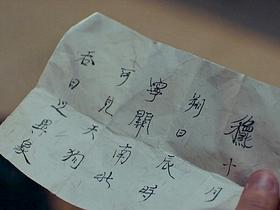 十月
朔日辰時
寧關南北
可見天狗
吞日之異象